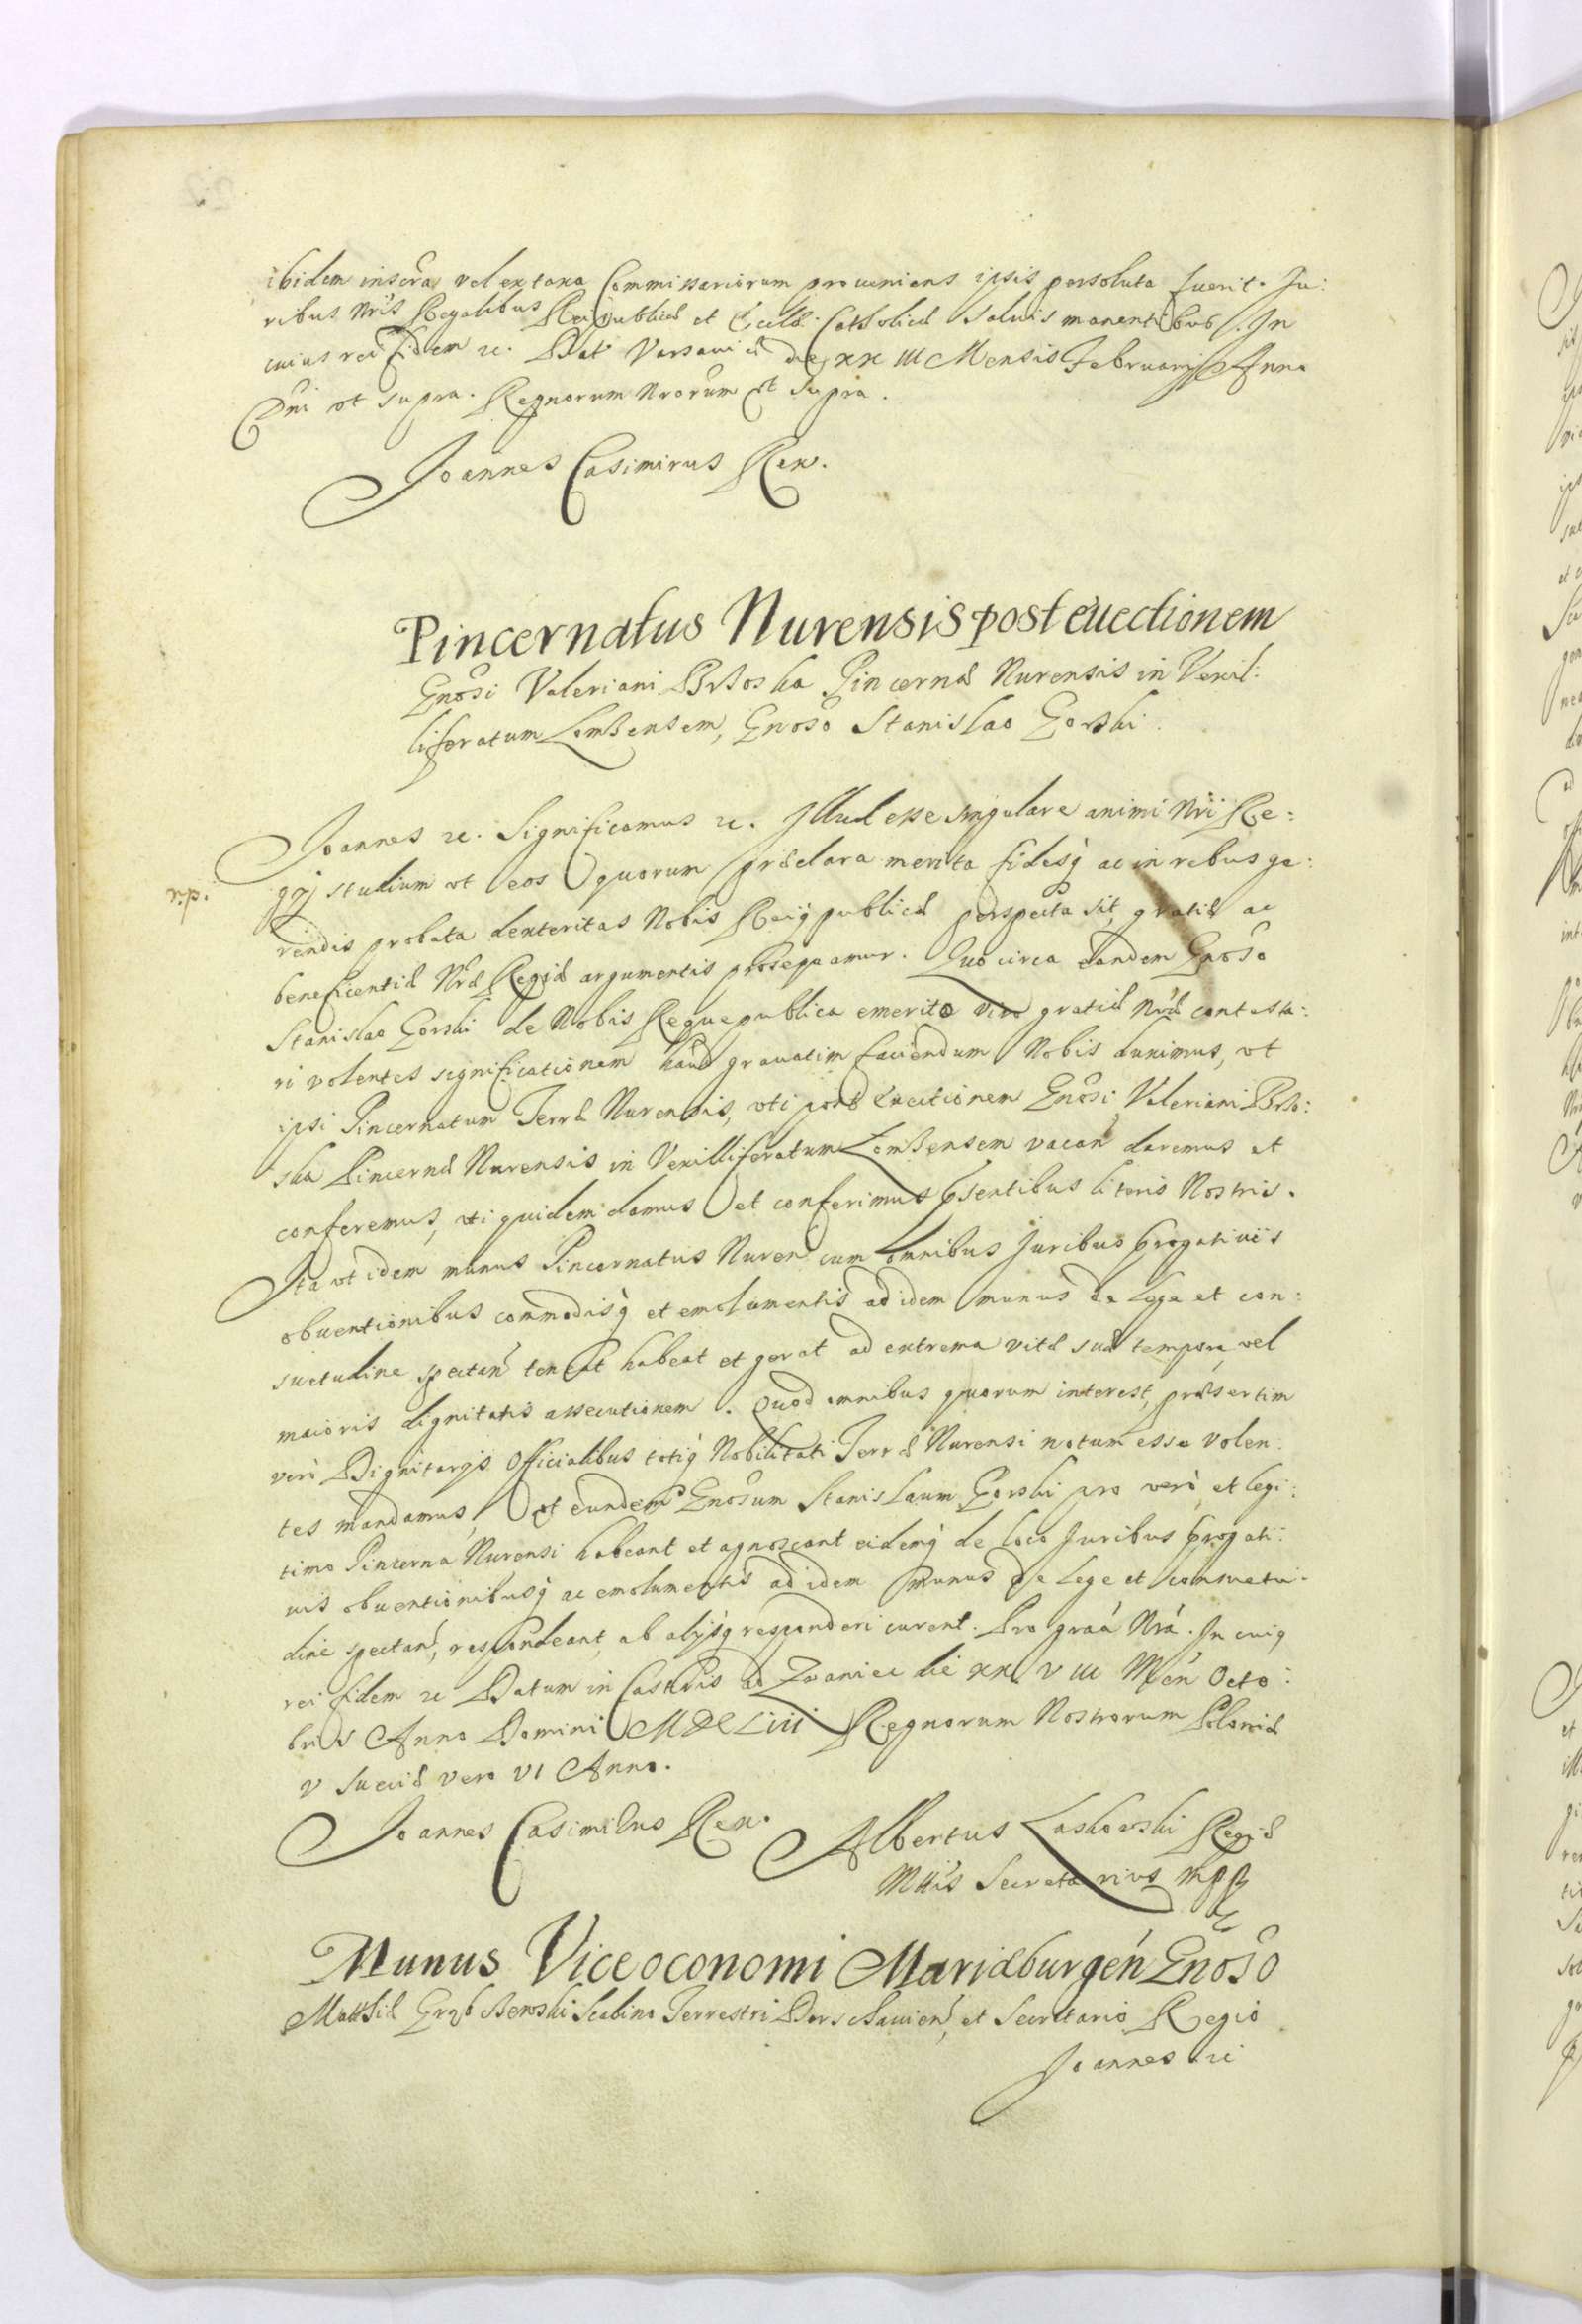 ibidem inscra vel ex taxa Commissariorum proueniens ipsis persoluta fuerit. Ju:
ribus Nris Regalibus Reipublicæ et Eccle: Catholicæ saluis manentibus. In
cuius rei fidem etc. Dat Varsauiæ die XXIII Mensis Februarij Anno
Dni vt supra. Regnorum Nrorum vt supra.
Joannes Casimirus Rex.
Pincernatus Nurensis post euectionem
Gnosi Valeriani Pincernæ Nurensis in Vexil:
liferatum Lomzensem, Gnoso Stanislao Gorski
Joannes etc. Significamus etc. Illud esse singulare animi Nri Re:
rp.
gij studium vt eos quorum præclara merita fidesq ac in rebus ge:
rendis probata dexteritas Nobis Reiq publicæ perspecta sit, gratiæ ac
beneficentiæ Nræ Regiæ argumentis prosequamur. Quo circa eandem Gnoso
Stanislao Gorski de Nobis Requepublica emerito viro gratiæ Nræ contesta:
ri volentes significationem haud grauatim faciendum Nobis duximus, vt
ipsi Pincernatum Terræ Nurensis, vti post Euectionem Gnosi Valeriani
ska Pincernæ Nurensis in Vexilliferatum Lomzensem vacan daremus et
conferemus, vti quidem damus et conferimus psentibus literis Nostris.
Ita vt idem munus Pincernatus Nuren cum omnibus Juribus progatiuis
obuentionibus commodisq et emolumentis ad idem munus de Lege et con:
suetudine spectan teneat habeat et gerat ad extrema vitæ suæ tempora, vel
maioris dignitatis assecutionem. Quod omnibus quorum interest, præsertim
verò Dignitarijs Officialibus totiq Nobilitati Terræ Nurensi notum esse volen:
tes mandamus, vt eundem Gnosum Stanislaum Gorski pro vero, et legi:
timo Pincerna Nurensi habeant et agnoscant eidemq de loco Juribus progati:
uis obuentionibusq ac emolumentis ad idem munus de Lege et consuetu:
dine spectan, respondeant, ab alijsq responderi curent. Pro graa Nra. In cuiq
rei fidem etc Datum in Castris ad Zwaniec die XXVIII Men Octo:
bris Anno Domini MDCLIII Regnorum Nostrorum Poloniæ
V Sueciæ vero VI Anno.
Joannes Casimirus Rex. Albertus Laskowski Regiæ
Mttis Secretarius mpp
Munus Viceoconomi Mariæburgen Gnoso
Matthiæ Scabino Terrestri et Secretario Regio
Joannes etc